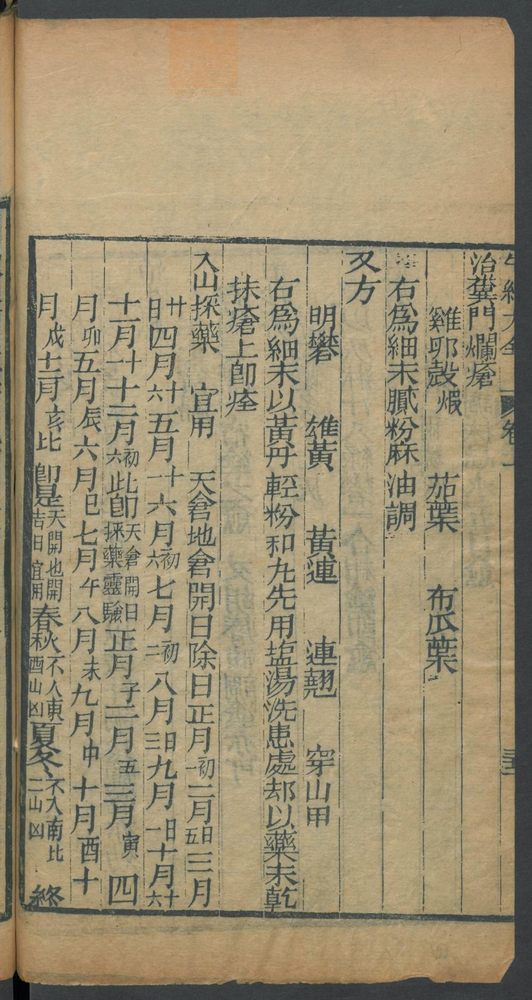 治糞門爛瘡
雞卵殼煆　茄葉　布瓜葉
右為細末膩粉麻油調
又方
明礬　雄黃　黃連　連翹　穿山甲
右為細末以黃丹輕粉和九先用塩湯洗患處却以藥末乾
抹瘡上卽痊
入山採藥　宜用　天倉地倉開日除日正月初一二月五日三月
廿日四月六十五月十六月初六七月初二八月三日九月一日十月十六
十一月十十二月初六此卽天倉開日採藥靈驗正月子二月五三月寅四
月卯五月辰六月巳七月午八月未九月申十月酉十
月戌十二月亥比卽是天開也開吉日宜用春秋不入東酉山凶夏冬不入南比二山凶　終